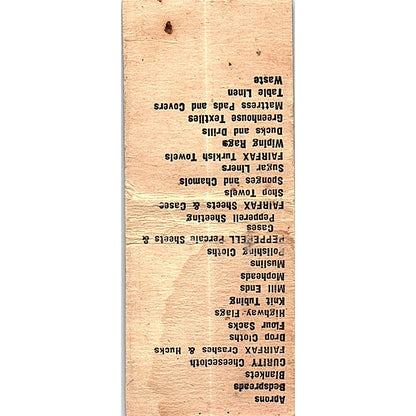 Aprons
Bedspreads
Blankets
CURITY Cheesecloth
FAIRFAX Crashes & Hucks
Drop Cloths
Flour Sacks
Highway Flags
Knit Tubing
Mill Ends
Mopheads
Muslins
Polishing Cloths
PEPPERELL Percale Sheets &
Cases
Pepperell Sheeting
FAIRFAX Sheets & Cases
Shop Towels
Sponges and Chamois
Sugar Liners
FAIRFAX Turkish Towels
Wiping Rags
Ducks and Drills
Greenhouse Textiles
Mattress Pads and Covers
Table Linen
Waste